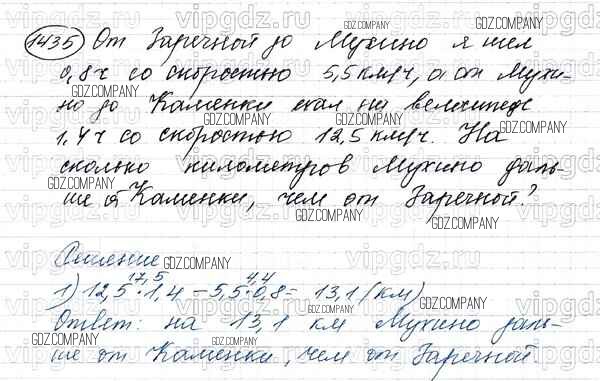 1435 От Заречной до Мухино я шел
0,8 ч со скоростью 5,5 км/ч, а от Мухи-
но до Каменки ехал на велосипеде
1,4 ч со скоростью 12,5 км/ч. На
сколько километров Мухино даль-
ше от Каменки, чем от Заречной?
Решение
17,5 4,4
1) 12,5 · 1,4 – 5,5 · 0,8 = 13,1 (км)
Ответ: на 13,1 км Мухино даль-
ше от Каменки, чем от Заречной.
vipgdz.ru
GDZ.COMPANY